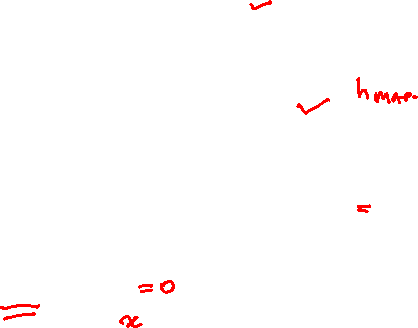 ✓
h MAP.
✓
=
= 0
x